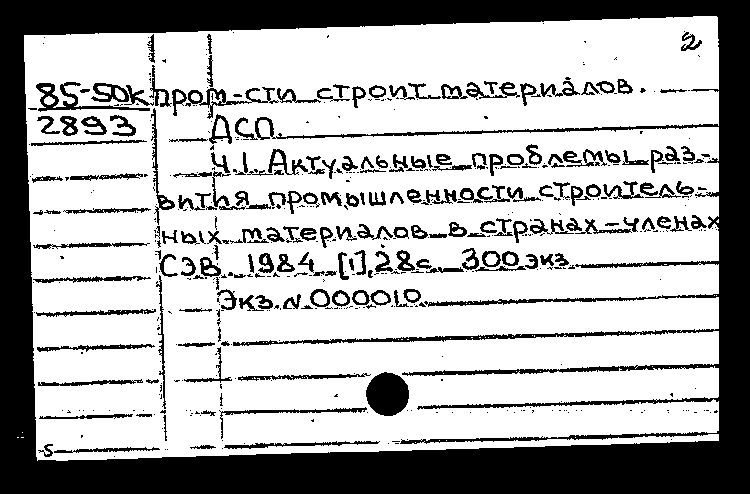 2
85-50к пром-сти строит. материалов.
2893 ДСП.
Ч.1. Актуальные проблемы раз-
вития промышленности строитель-
ных материалов в странах-членах
СЭВ. 1984 [1], 28с. 300 экз.
Экз. N 000010.
5